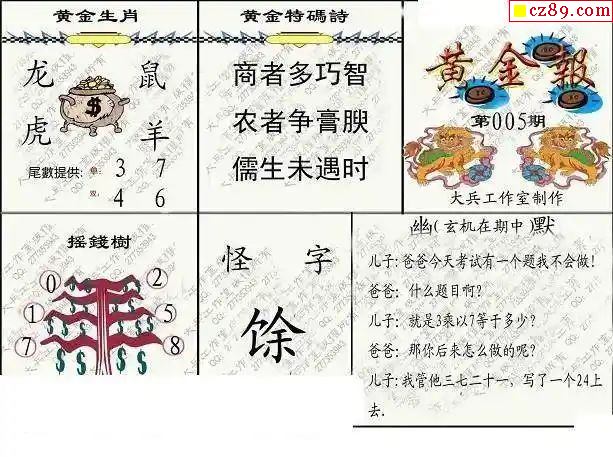 cz89.com
黄金生肖
龙 鼠
虎 羊
尾數提供: 单: 3 7
双: 4 6
黄金特碼詩
商者多巧智
农者争膏腴
儒生未遇时
黄金報
第005期
大兵工作室制作
摇錢樹
0 2
1 5
7 8
怪 字
馀
幽(玄机在期中)默
儿子:爸爸今天考试有一个题我不会做!
爸爸: 什么题目啊?
儿子: 就是3乘以7等于多少?
爸爸: 那你后来怎么做的呢?
儿子:我管他三七二十一, 写了一个24上
去.